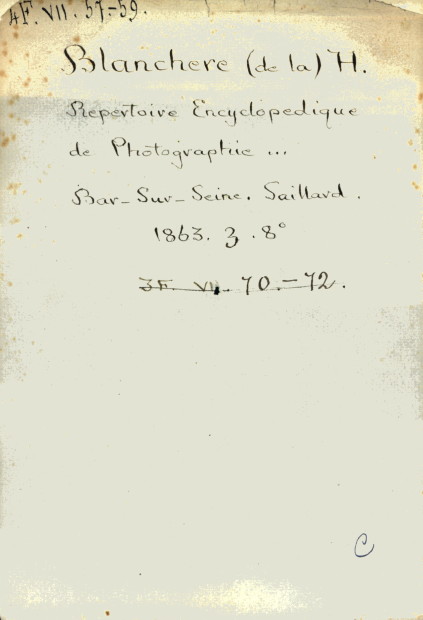 4F. VII. 57-59.
Blanchere (de la) H.
Repertoire Encyclopedique
de Photographie ...
Bar-Sur-Seine. Saillard.
1863. 3. 8°
3F. VII. 70.-72.
C